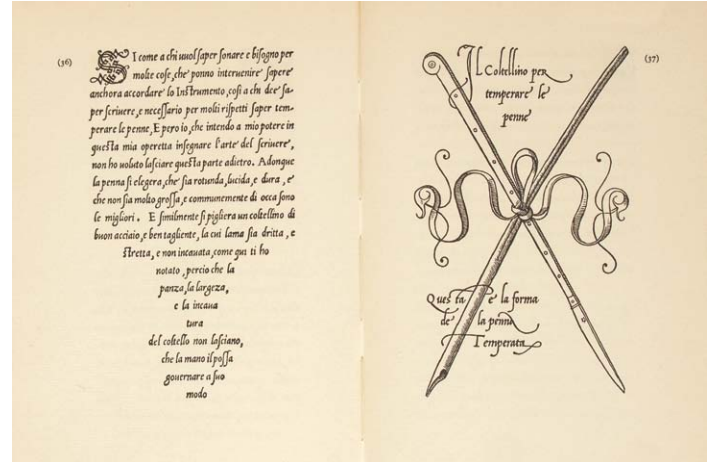 (36)
SI come a chi uuol saper sonare e bisogno per
molte cose, che ponno interuenire sapere
anchora accordare lo Instrumento, cosi a chi dee sa-
per scriuere, e necessario per molti rispetti saper tem-
perare le penne, E pero io, che intendo a mio potere in
questa mia operetta insegnare l'arte del scriuere,
non ho uoluto lasciare questa parte adietro. Adonque
la penna si elegera, che sia rotunda, lucida, e dura, e
che non sia molto grossa, e communemente di occa sono
le migliori. E similmente si pigliera un coltellino di
buon acciaio, e ben tagliente, la cui lama sia dritta, e
stretta, e non incauata, come qui ti ho
notato, percio che la
panza, la largeza,
e la incaua
tura
del coltello non lasciano,
che la mano il possa
gouernare a suo
modo
(37)
IL Coltellino per
temperare le
penne
Questa e la forma
de la penna
Temperata